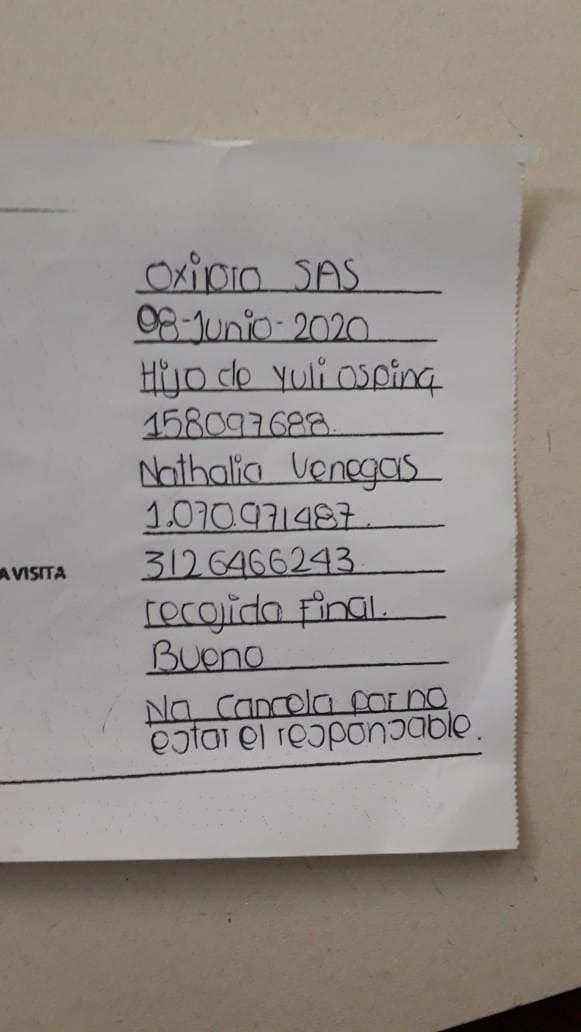 Oxipro SAS
08-Junio-2020
Hijo de Yuli Ospina
158097688.
Nathalia Venegas
1.070.971487.
3126466243.
A VISITA
recojida Final.
Bueno
Na Cancela por no
estar el responsable.